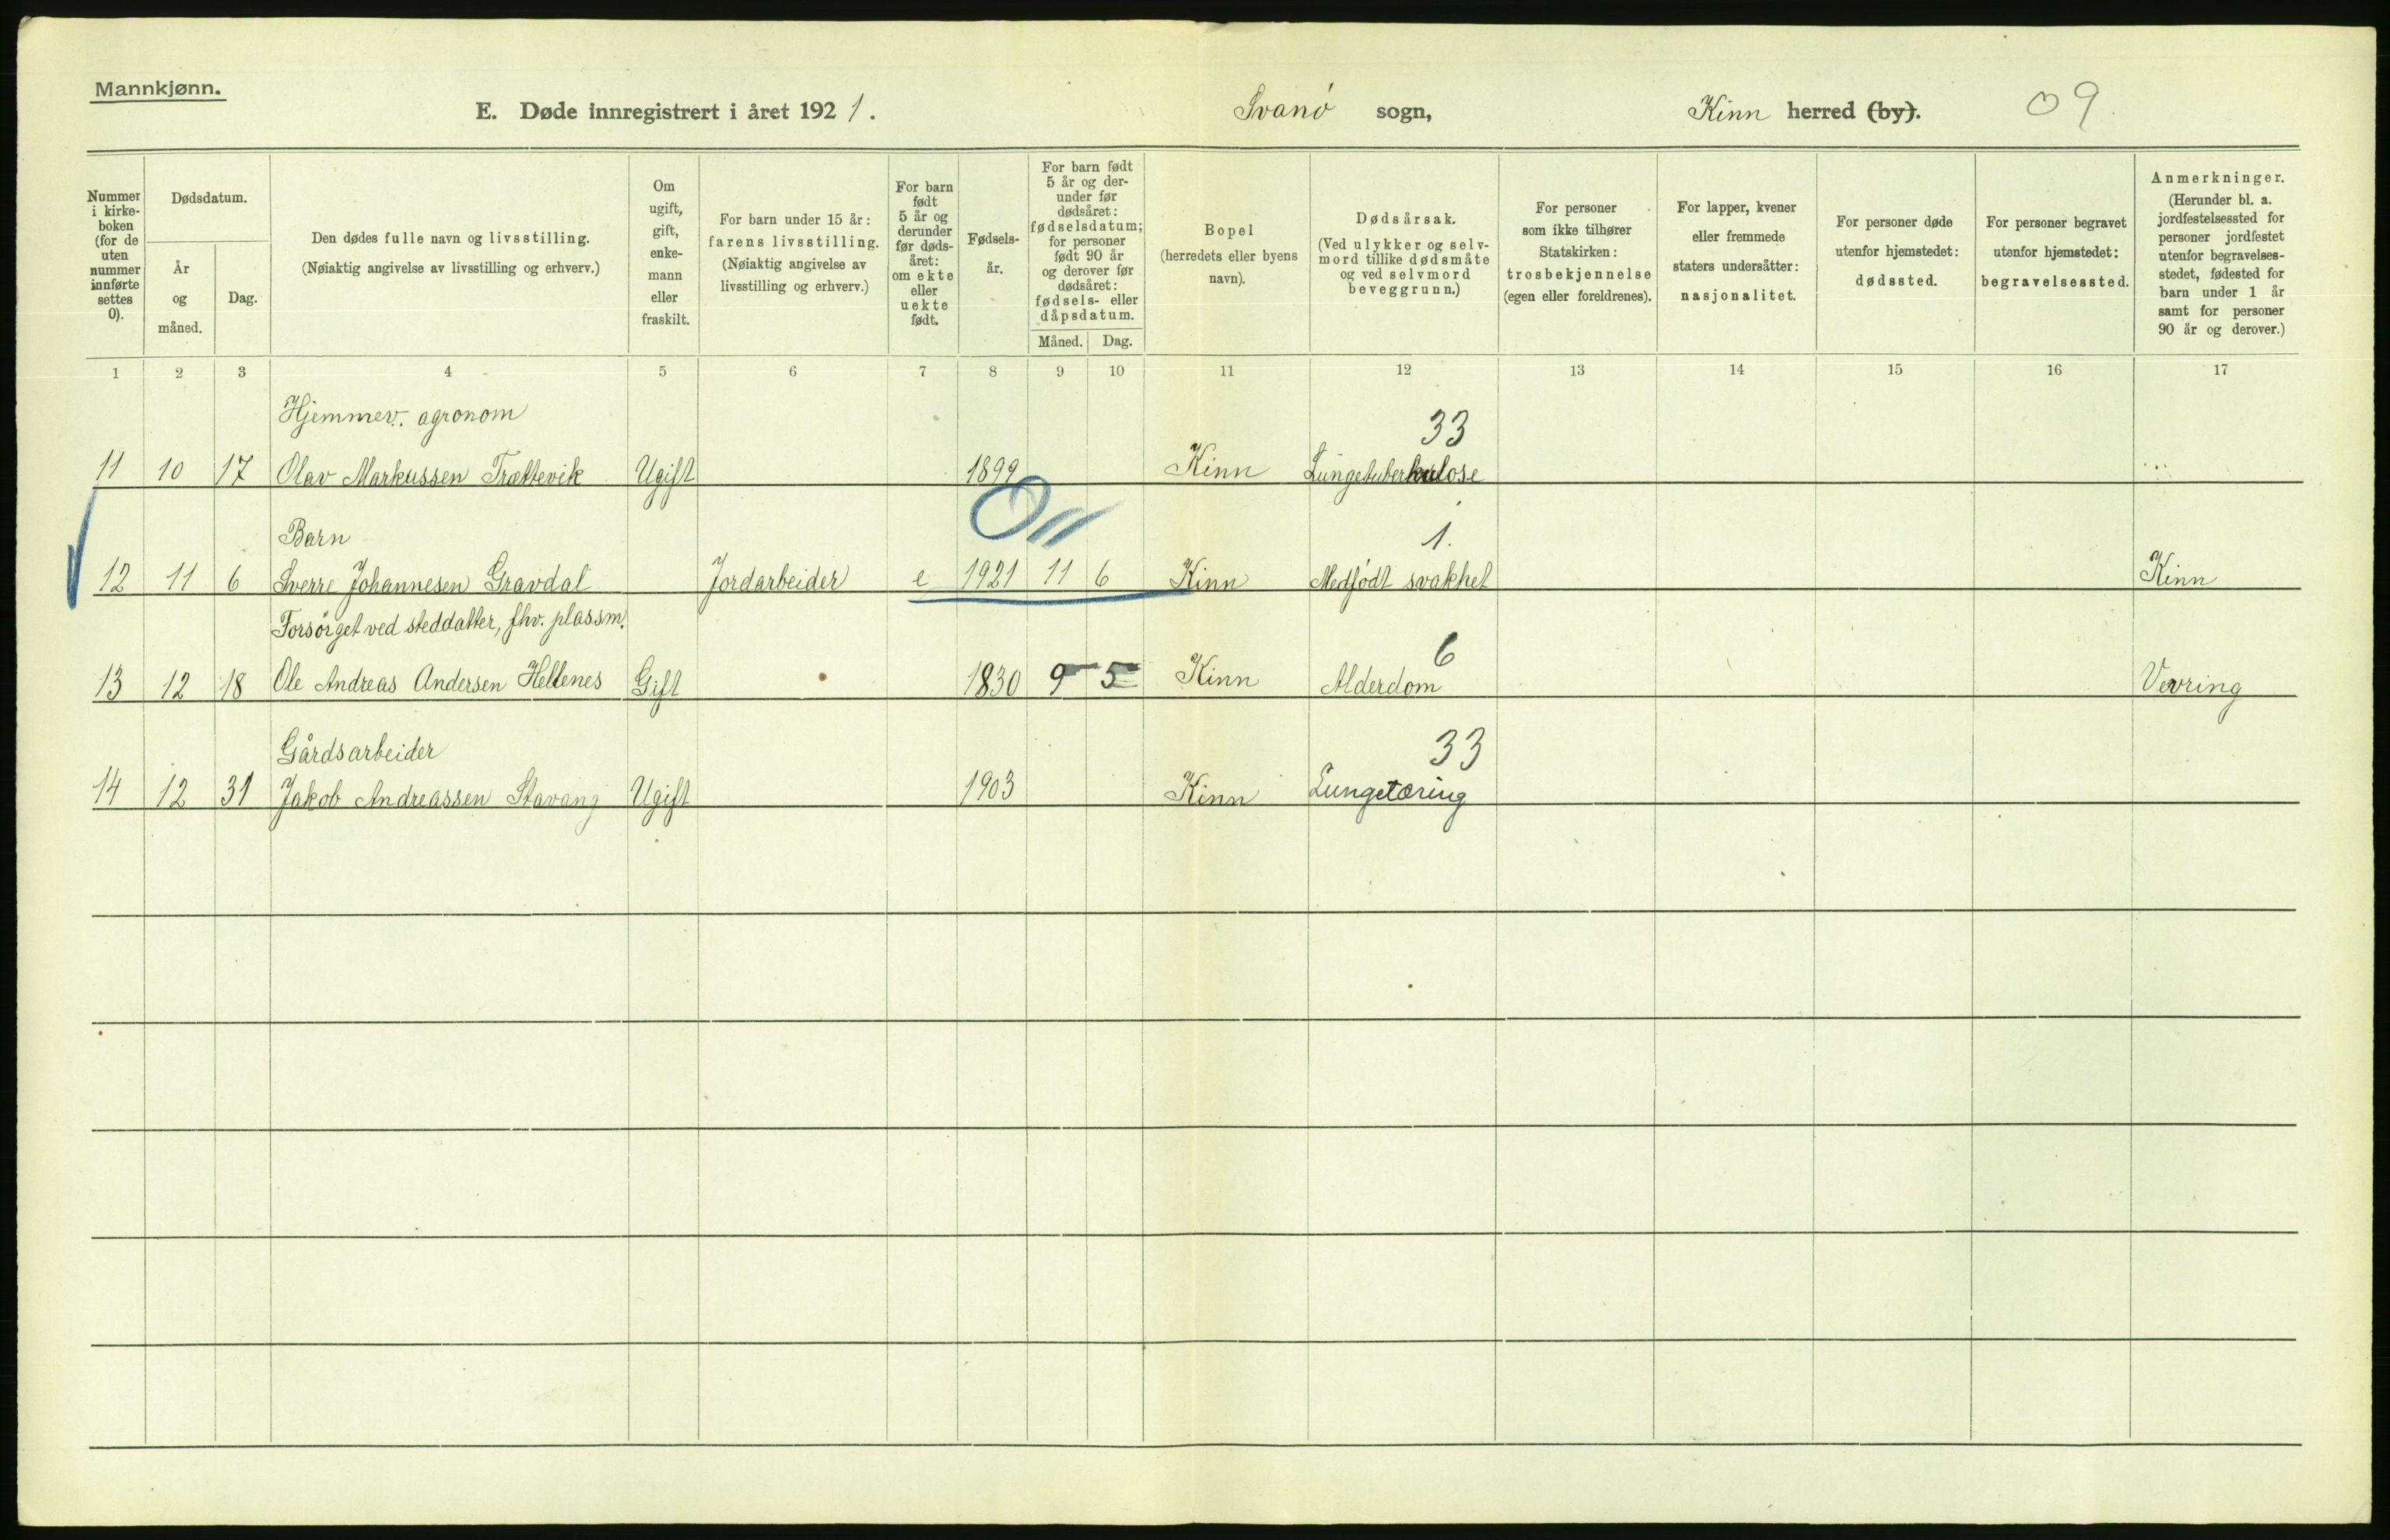 Mannkjønn.
E. Døde innregistrert i året 1921. Svanö sogn, Kinn herred (by). 09
Nummer i kirkeboken (for de uten nummer innførte settes 0).
Dødsdatum.
År og måned.
Dag.
Den dødes fulle navn og livsstilling.
(Nøiaktig angivelse av livsstilling og erhverv.)
Om ugift, gift, enkemann eller fraskilt.
For barn under 15 år: farens livsstilling.
(Nøiaktig angivelse av livsstilling og erhverv.)
For barn født 5 år og derunder før dødsåret: om ekte eller uekte født.
Fødselsår.
For barn født 5 år og derunder før dødsåret: fødselsdatum; for personer født 90 år og derover før dødsåret: fødsels- eller dåpsdatum.
Måned. Dag.
Bopel
(herredets eller byens navn).
Dødsårsak.
(Ved ulykker og selvmord tillike dødsmåte og ved selvmord beveggrunn.)
For personer som ikke tilhører Statskirken: trosbekjennelse (egen eller foreldrenes).
For lapper, kvener eller fremmede staters undersåtter: nasjonalitet.
For personer døde utenfor hjemstedet: dødssted.
For personer begravet utenfor hjemstedet: begravelsessted.
Anmerkninger.
(Herunder bl. a. jordfestelsessted for personer jordfestet utenfor begravelsesstedet, fødested for barn under 1 år samt for personer 90 år og derover.)
1 2 3 4 5 6 7 8 9 10 11 12 13 14 15 16 17
Hjemmev. agronom 33
11 10 17 Olav Markussen Trættevik Ugift 1899 Kinn Lungetuberkulose
Barn 1.
12 11 6 Sverre Johannesen Gravdal Jordarbeider e 1921 11 6 Kinn Medfödt svakhet Kinn
Forsörget ved steddatter, fhv. plassm. 6
13 12 18 Ole Andreas Andersen Hellenes Gift 1830 9 5 Kinn Alderdom Vevring
Gårdsarbeider 33
14 12 31 Jakob Andreassen Stavang Ugift 1903 Kinn Lungetæring